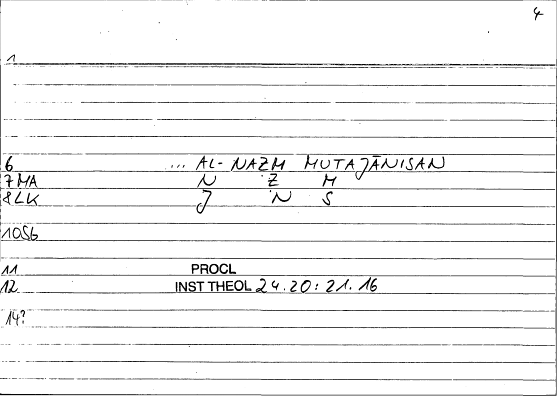 4
1
6 ... AL-NAẒM MUTAJĀNISAN
7MA N Ẓ M
8LK J N S
10SG
11 PROCL
12 INST THEOL 24.20: 21.16
14?